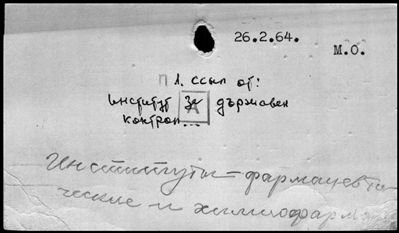 26.2.64.
М.О.
П 1. ссыл от:
Институт за държавен
контрол...
Институты-фармацевти-
ческие и химиофарм